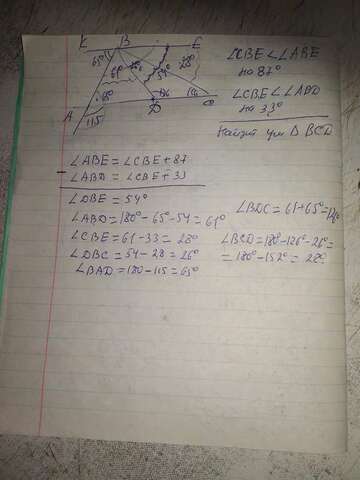 K B E
65° 61° 54° 28°
A 115 65° D C
∠CBE < ∠ABE
на 87°
∠CBE < ∠ABD
на 33°
Найти угл Δ BCD
∠ABE = ∠CBE + 87
∠ABD = ∠CBE + 33
∠DBE = 54°
∠ABD = 180° - 65 - 54 = 61°
∠CBE = 61 - 33 = 28°
∠DBC = 54 - 28 = 26°
∠BAD = 180 - 115 = 65°
∠BDC = 61 + 65° = 126°
∠BCD = 180° - 126° - 26° =
= 180° - 152° = 28°